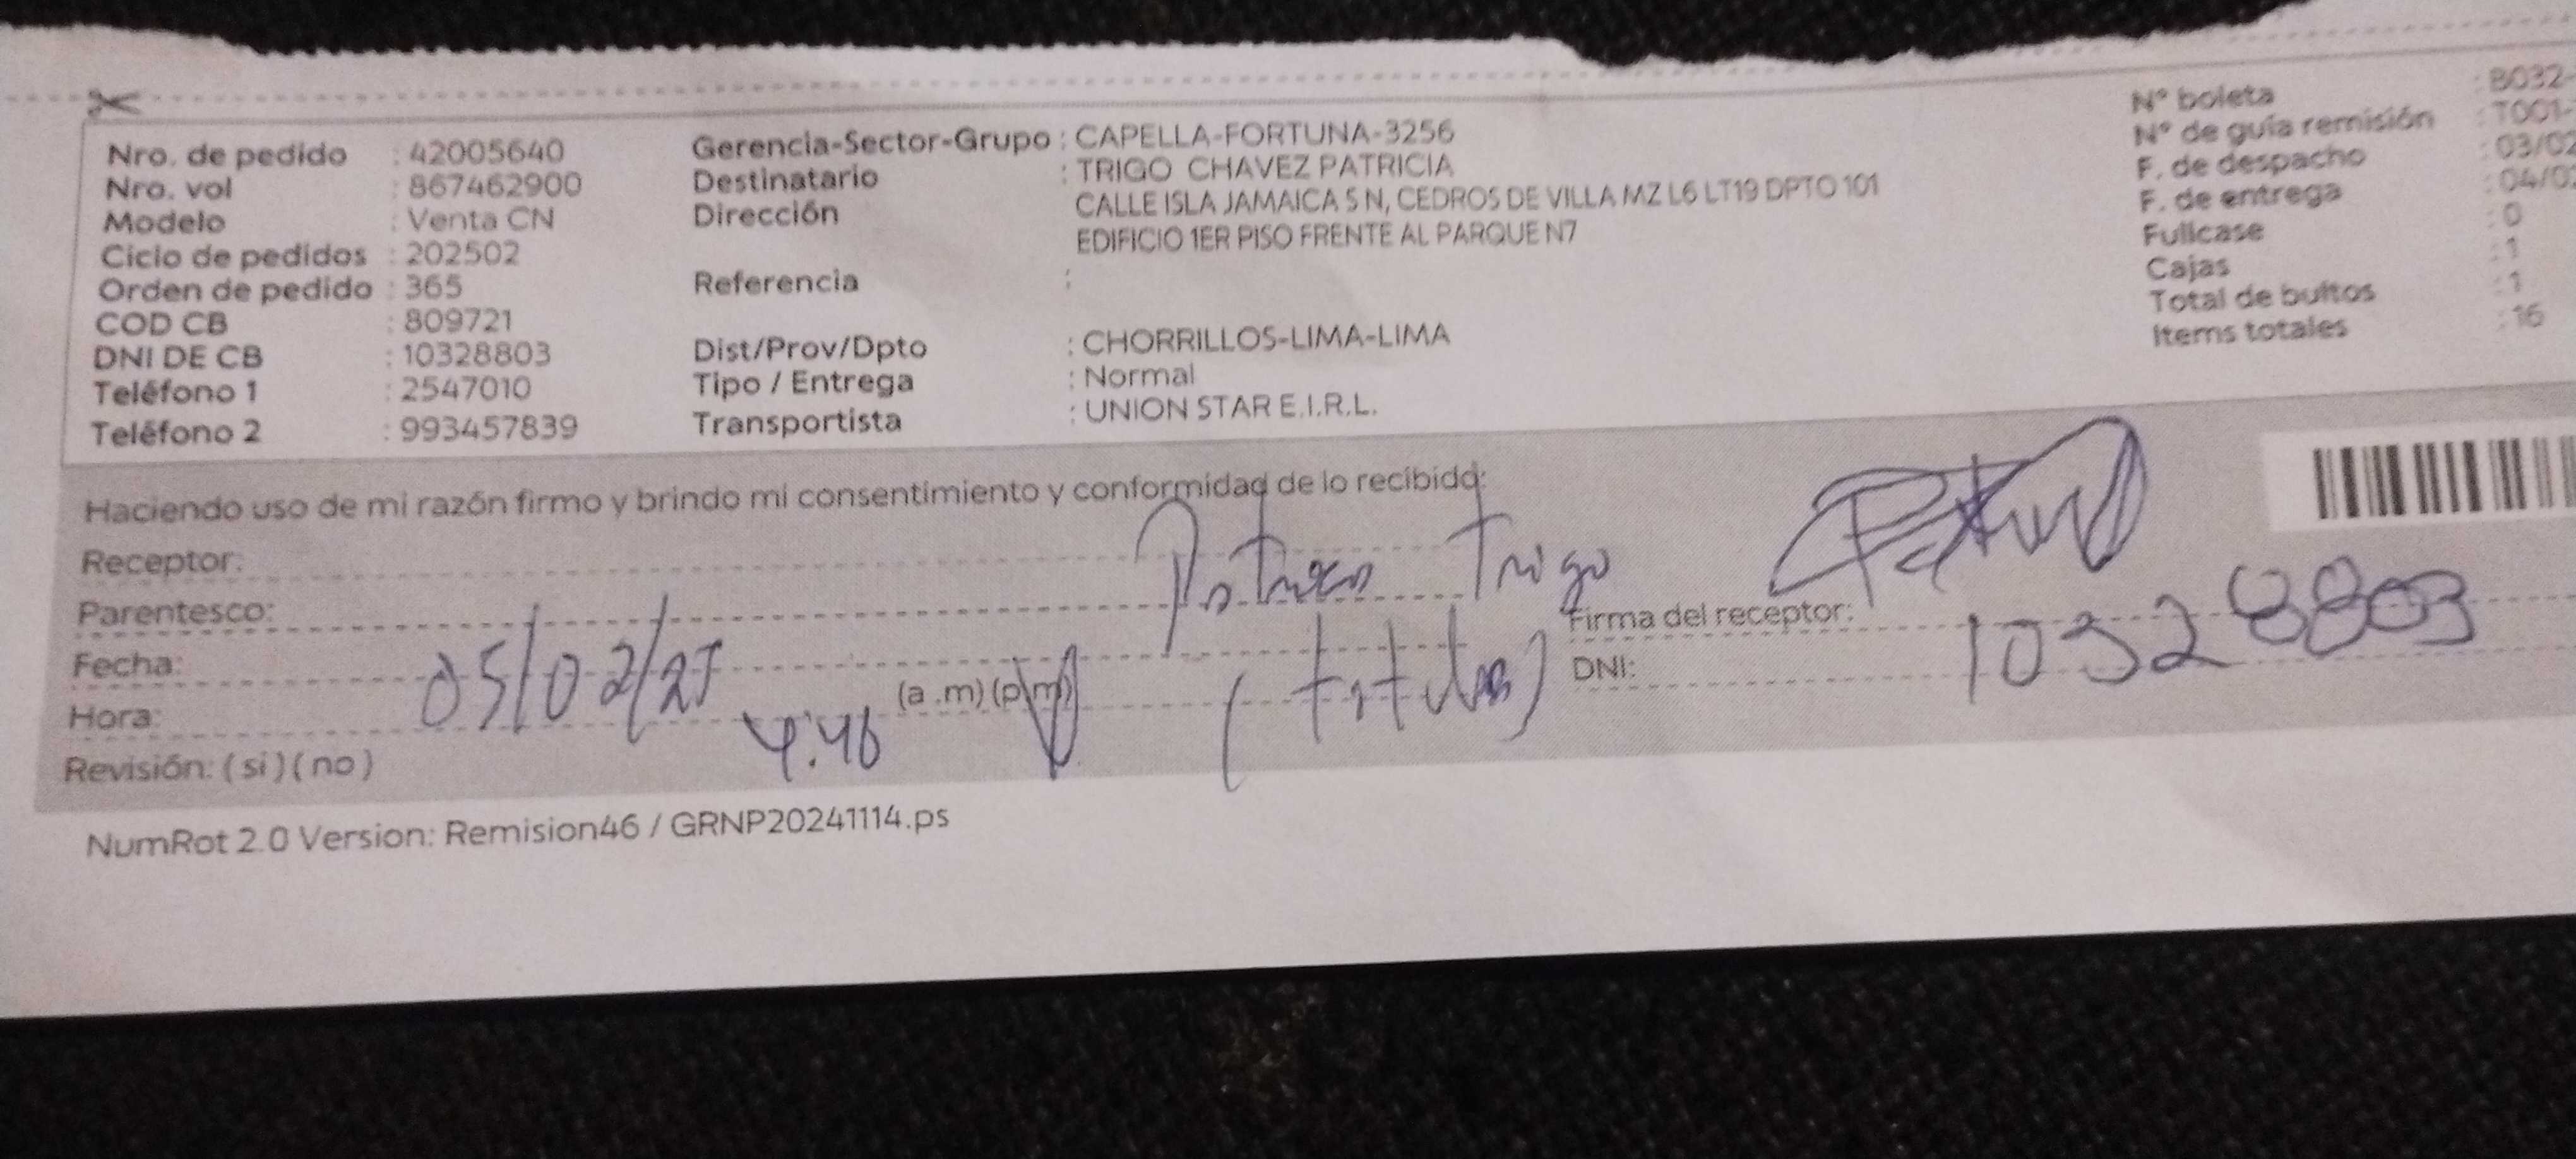 Nro. de pedido : 42005640
Nro. vol : 867462900
Modelo : Venta CN
Ciclo de pedidos : 202502
Orden de pedido : 365
COD CB : 809721
DNI DE CB : 10328803
Teléfono 1 : 2547010
Teléfono 2 : 993457839
Gerencia-Sector-Grupo : CAPELLA-FORTUNA-3256
Destinatario : TRIGO CHAVEZ PATRICIA
Dirección CALLE ISLA JAMAICA S N, CEDROS DE VILLA MZ L6 LT19 DPTO 101
EDIFICIO 1ER PISO FRENTE AL PARQUE N7
Referencia :
Dist/Prov/Dpto : CHORRILLOS-LIMA-LIMA
Tipo / Entrega : Normal
Transportista : UNION STAR E.I.R.L.
N° boleta : B032-
N° de guía remisión : T001-
F. de despacho : 03/02
F. de entrega : 04/0
Fullcase : 0
Cajas : 1
Total de bultos : 1
Items totales : 16
Haciendo uso de mi razón firmo y brindo mi consentimiento y conformidad de lo recibido:
Receptor: Patricia Trigo
Parentesco: (titular)
Fecha: 05/02/25
Hora: 4:46 (a .m) (p.m)
Revisión: ( si ) ( no )
Firma del receptor:
DNI: 10328803
NumRot 2.0 Version: Remision46 / GRNP20241114.ps